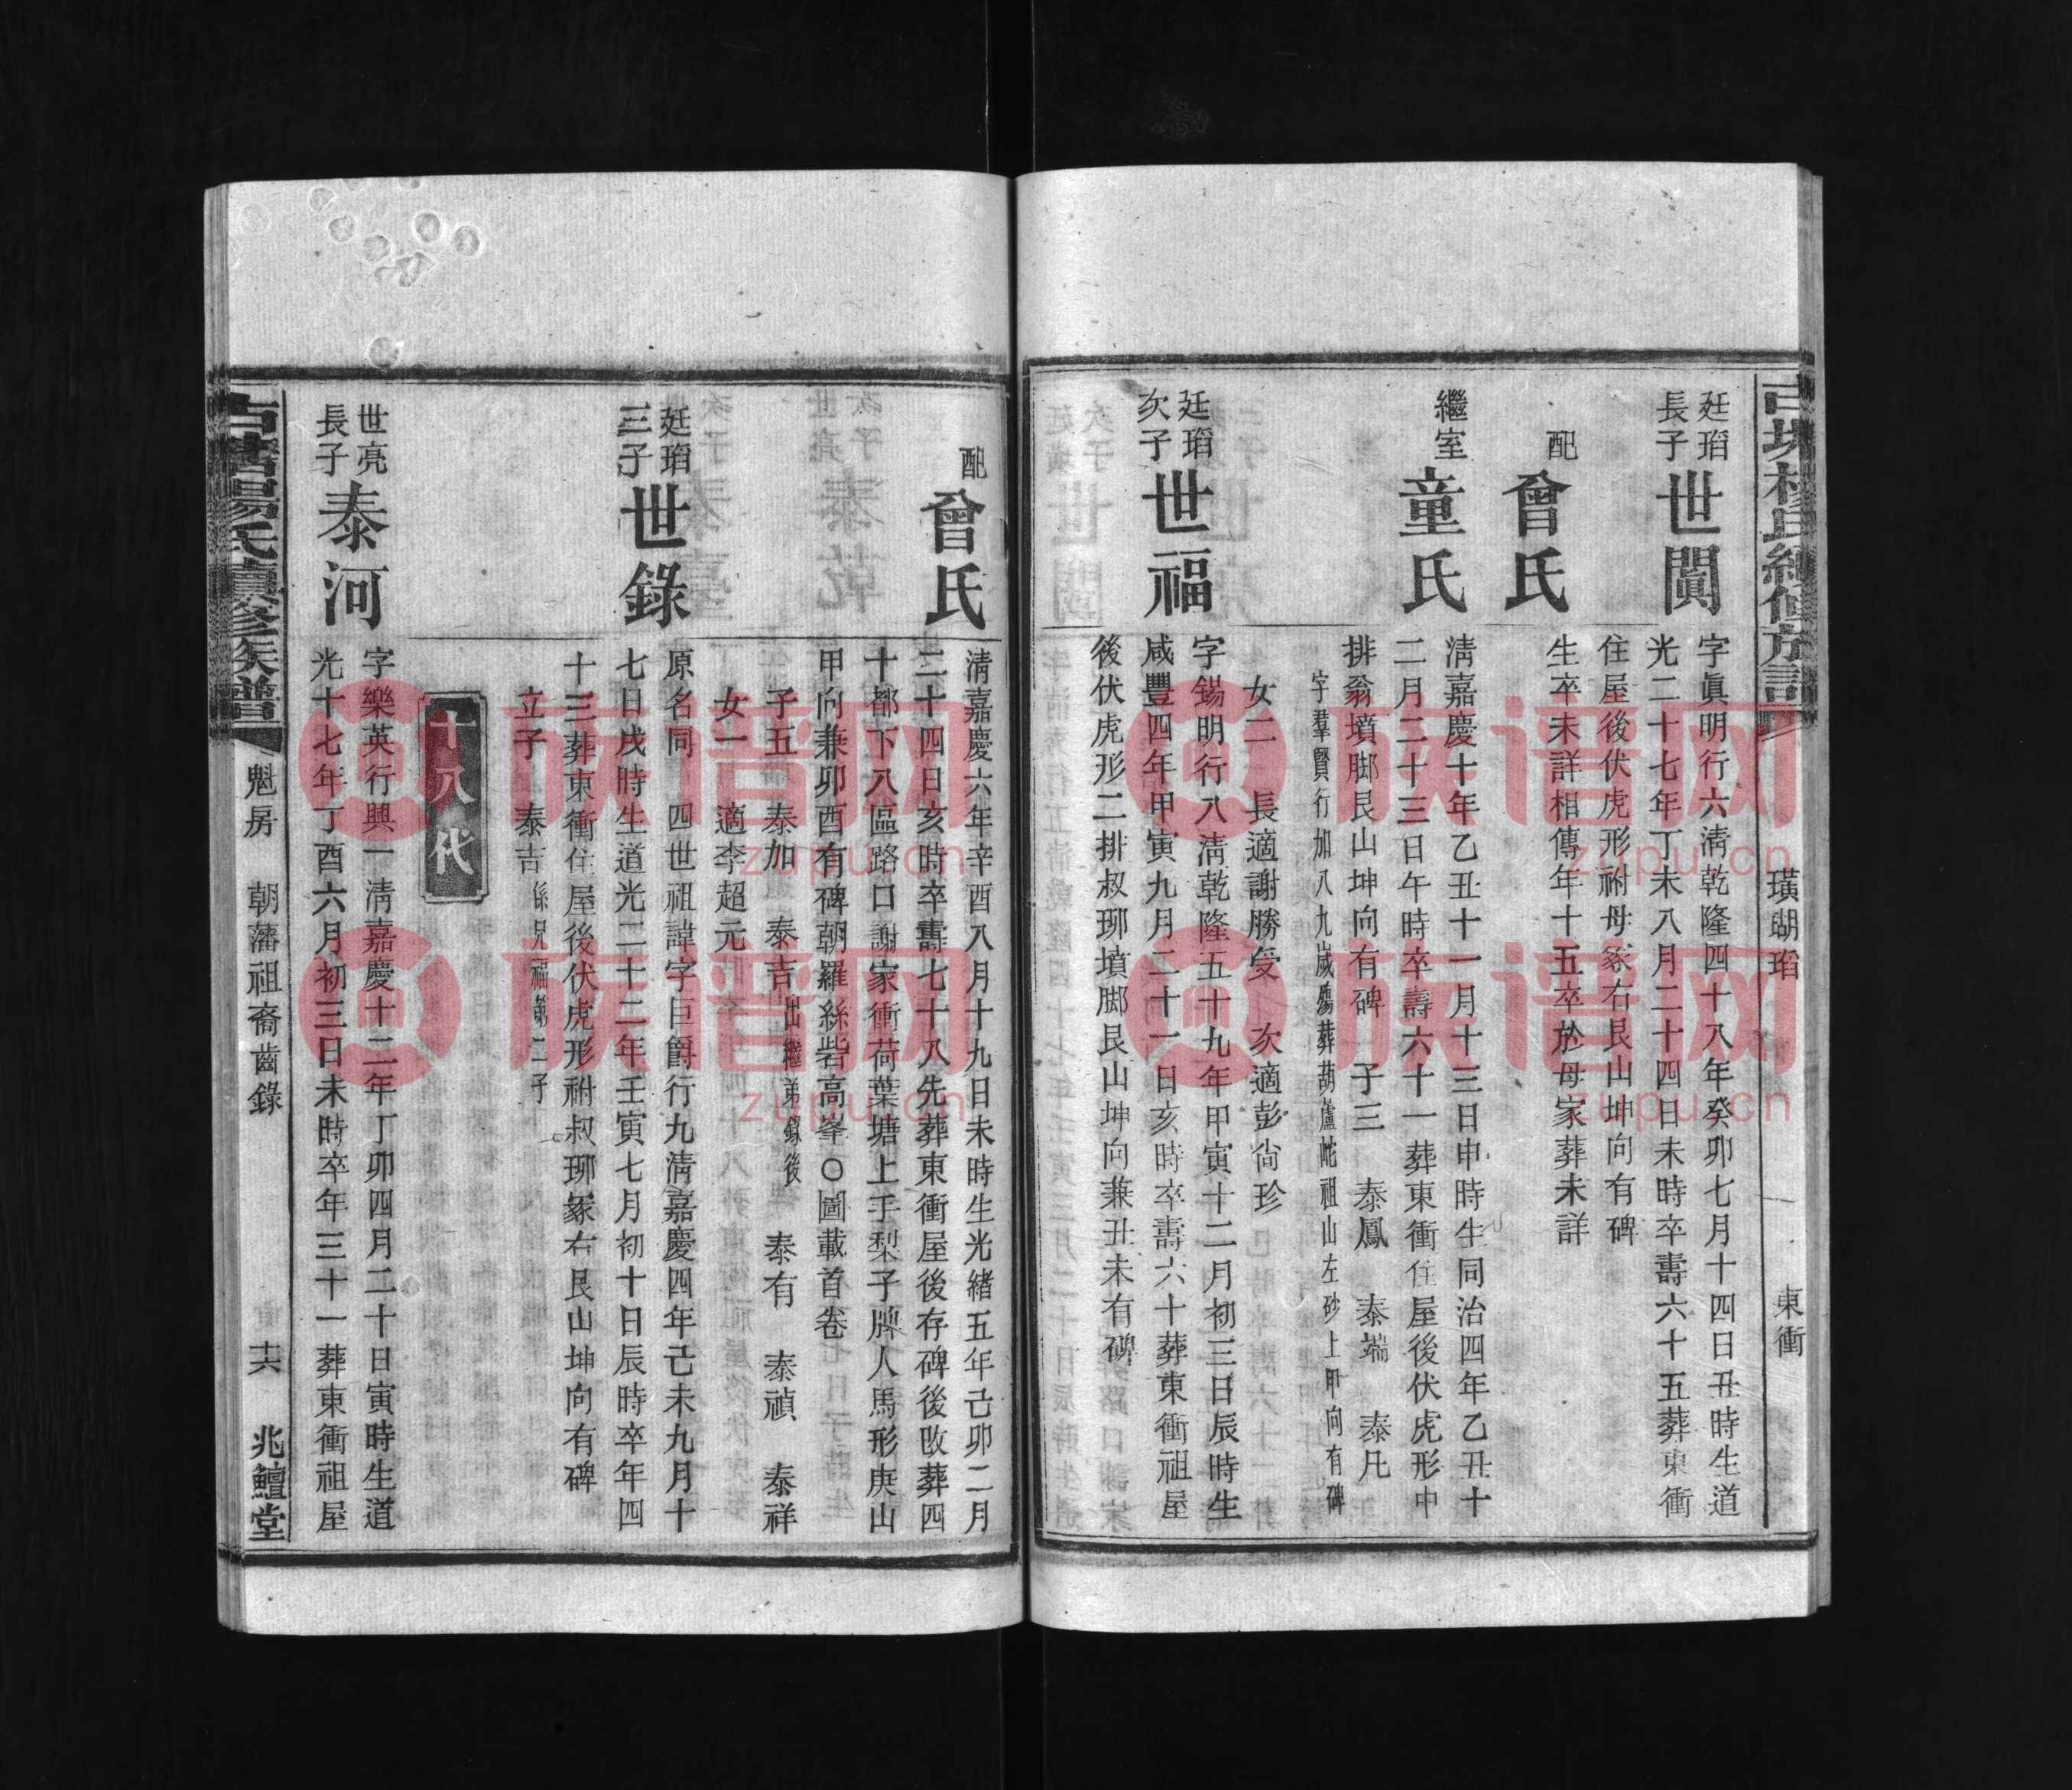 璜瑚瑫
東衝
廷瑫
長子
世闐
字眞明行六淸乾隆四十八年癸卯七月十四日丑時生道
光二十七年丁未八月二十四日未時卒壽六十五葬東衝
住屋後伏虎形祔母冢右艮山坤向有碑
配
曾氏
生卒未詳相傳年十五卒於母家葬未詳
繼室
童氏
淸嘉慶十年乙丑十一月十三日申時生同治四年乙丑十
二月二十三日午時卒壽六十一葬東衝住屋後伏虎形中
排翁墳脚艮山坤向有碑 子三 泰鳳 泰端 泰凡
字羣賢行加八九歲殤葬葫蘆岮祖山左砂上甲向有碑
女二 長適謝勝旻 次適彭尙珍
廷瑫
次子
世福
字錫明行八淸乾隆五十九年甲寅十二月初三日辰時生
咸豐四年甲寅九月二十一日亥時卒壽六十葬東衝祖屋
後伏虎形二排叔琊墳脚艮山坤向兼丑未有碑
配
曾氏
淸嘉慶六年辛酉八月十九日未時生光緖五年己卯二月
二十四日亥時卒壽七十八先葬東衝屋後存碑後改葬四
十都下八區路口謝家衝荷葉塘上手梨子牌人馬形庚山
甲向兼卯酉有碑朝羅絲砦高峯〇圖載首卷
子五 泰加 泰吉出繼弟錄後 泰有 泰禎 泰祥
女一 適李超元
廷瑫
三子
世錄
原名同 四世祖諱字巨爵行九淸嘉慶四年己未九月十
七日戌時生道光二十二年壬寅七月初十日辰時卒年四
十三葬東衝住屋後伏虎形祔叔琊冢右艮山坤向有碑
立子 泰吉係兄福第二子
十八代
世亮
長子
泰河
字樂英行興一淸嘉慶十二年丁卯四月二十日寅時生道
光十七年丁酉六月初三日未時卒年三十一葬東衝祖屋
魁房 朝藩祖裔齒錄
十六
兆鱣堂
族谱网
zupu.cn
族谱网
zupu.cn
族谱网
zupu.cn
族谱网
zupu.cn